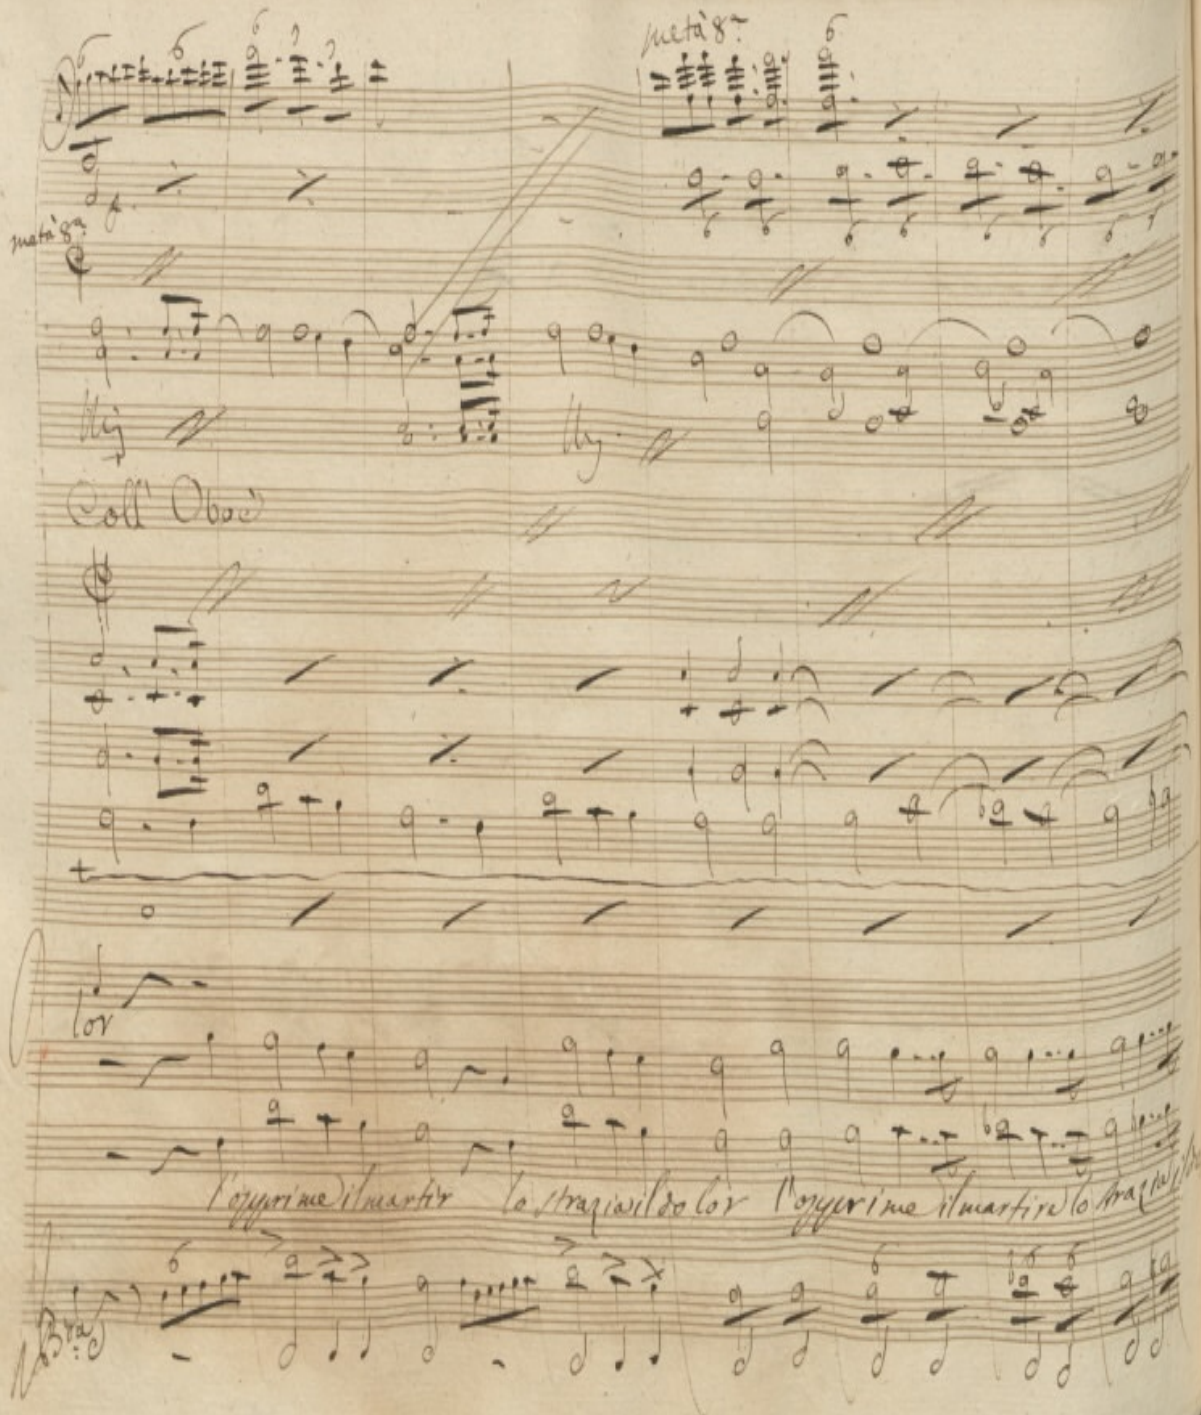 metà 8ª
metà 8ª
Coll' Oboè
lor
l'opprime il martir lo strazia il dolor l'opprime il martire lo strazia il